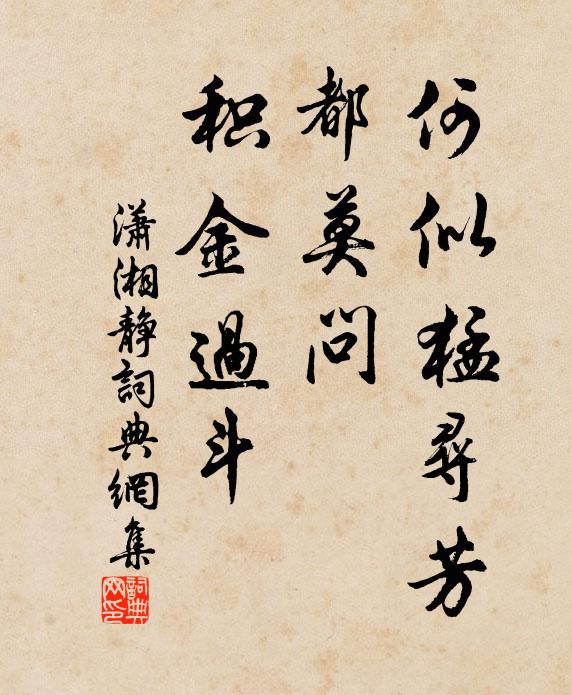 何似猛尋芳
都莫问
积金過斗
潇湘静詞典網集
詞典网印